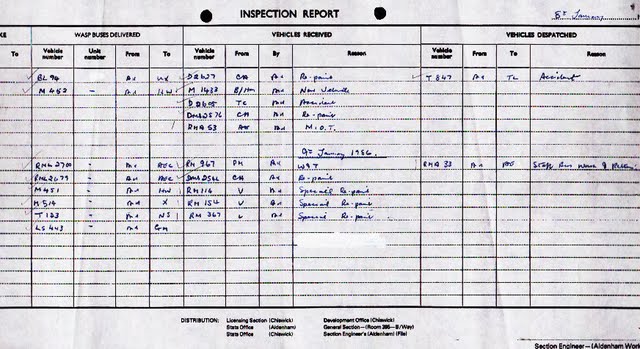 INSPECTION REPORT
8th January
KE WASP BUSES DELIVERED VEHICLES RECEIVED VEHICLES DESPATCHED
To Vehicle number Unit number From To Vehicle number From By Reason Vehicle number From To Reason
BL 94 An UX CH An Repairs T 847 An TC Accident
M 452 - An HW M 1433 B/Hm An New Vehicle
TC An Accident
DMS 2576 CH An Repair
RMA 53 An M.O.T.
9th January 1986
RML 2700 - An AEC RM 967 PH An RMA 33 An Staff Bus
RML 2679 - An AEC CH An Repair
M 451 - An HW RM 114 V An Special Repair
M 514 - An X RM 154 V An Special Repair
T 123 - An NS RM 367 V An Special Repair
LS 443 - An GM
DISTRIBUTION: Licensing Section (Chiswick) Development Office (Chiswick)
Stats Office (Aldenham) General Section—(Room 286—B/Way)
Stats Office (Chiswick) Section Engineer's (Aldenham) (File)
Section Engineer—(Aldenham Work